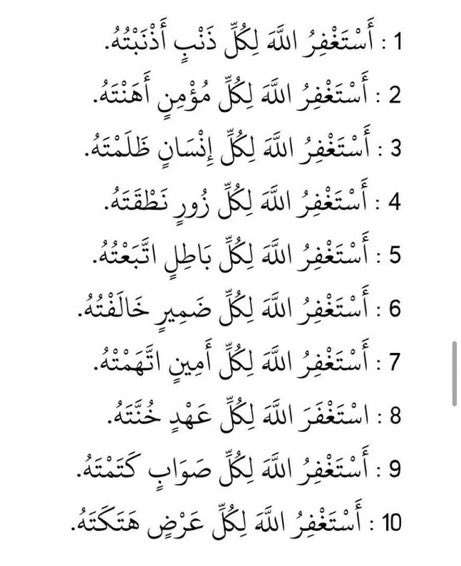 1 : أَسْتَغْفِرُ اللَّهَ لِكُلِّ ذَنْبٍ أَذْنَبْتُهُ.
2 : أَسْتَغْفِرُ اللَّهَ لِكُلِّ مُؤْمِنٍ أَهَنْتَهُ.
3 : أَسْتَغْفِرُ اللَّهَ لِكُلِّ إِنْسَانٍ ظَلَمْتَهُ.
4 : أَسْتَغْفِرُ اللَّهَ لِكُلِّ زُورٍ نَطْقَتَهُ.
5 : أَسْتَغْفِرُ اللَّهَ لِكُلِّ بَاطِلٍ اتَّبَعْتُهُ.
6 : أَسْتَغْفِرُ اللَّهَ لِكُلِّ ضَمِيرٍ خَالَفْتُهُ.
7 : أَسْتَغْفِرُ اللَّهَ لِكُلِّ أَمِينٍ اتَّهَمْتْهُ.
8 : اسْتَغْفَرَ اللَّهَ لِكُلِّ عَهْدٍ خُنَّتَهُ.
9 : أَسْتَغْفِرُ اللَّهَ لِكُلِّ صَوَابٍ كَتَمْتَهُ.
10 : أَسْتَغْفِرُ اللَّهَ لِكُلِّ عَرْضٍ هَتَكَتَهُ.